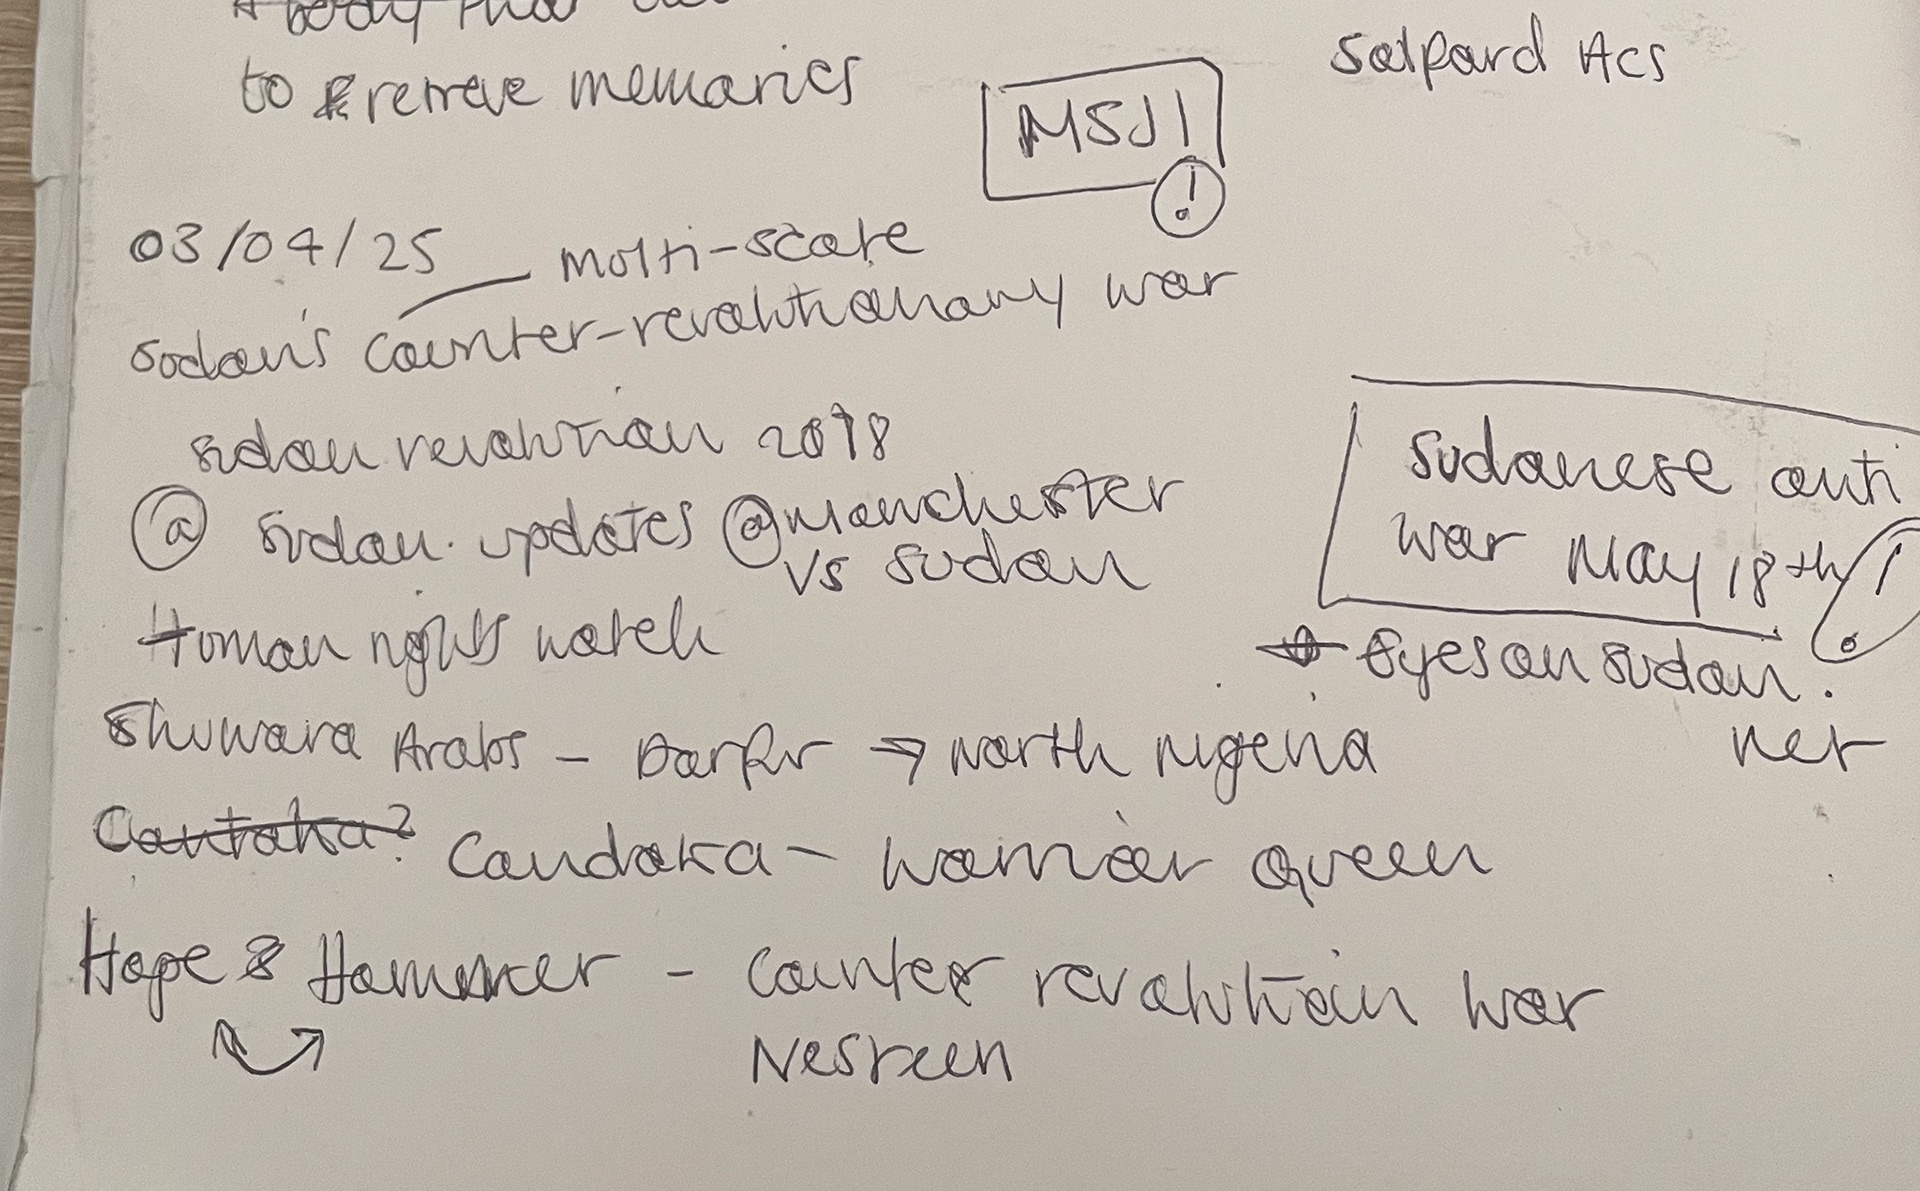 to retrieve memories
Salford Acs
MSJ!
!
03/04/25
multi-scale
Sudan's counter-revolutionary war
sudan revolution 2018
@ sudan.updates @manchester
vs sudan
Human rights watch
Sudanese anti
war May 18th !
→ Eyes on sudan.
net
Shuwara Arabs - Darfur → north nigeria
Cantaka? Candaka - warrior queen
Hope & Hammer - counter revolution war
Nesreen